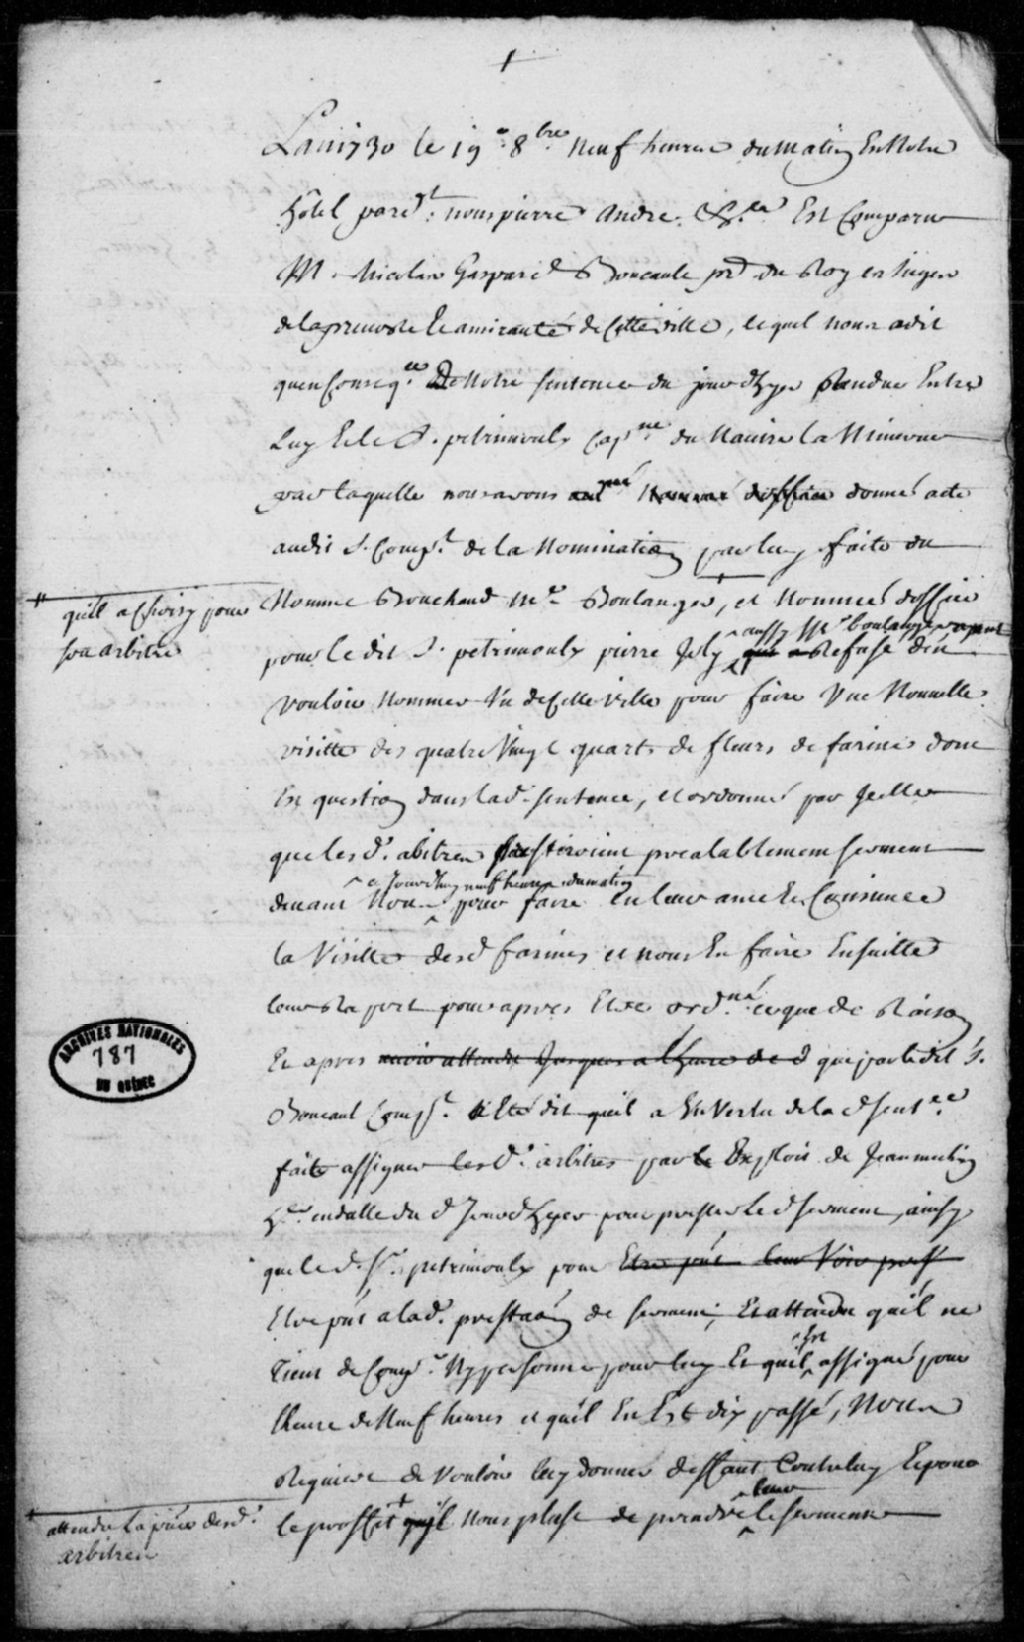 1
Lan 1730 le 19e 8bre neuf heures du matin En Notre
hôtel pardt nous pierre andré &ca Est Comparu
M. Nicolas Gaspard Boucault pr du Roy es sieges
de la prevosté Et amirauté de Cette ville, lequel nous a dit
quen Conseqce De Notre sentence du jour d'hyer Rendue Entre
Luy Et le S. petrimoulx Capne du Navire la Minerve
par laquelle nous avons donné acte
audit S. Compt de la Nomination par luy faite du
Nommé Bouchaud me Boulanger, et Nommé doffice
qu'il a Choisy pour
son arbitre
pour le dit S. petrimoulx pierre Joly aussy Me boulanger
Refusé d'en
vouloir Nommer Un de Cette ville pour faire Une Nouvelle
visitte des quatre Vingt quarts de fleurs de farines dont
Est question dans lad. sentence, et ordonné par Icelle
que lesd. abitres presteroient prealablement serment
devant Nous ce Jourdhuy neuf heures du matin pour faire En leur ame Et Consience
la Visitte desd farines et nous En faire Ensuitte
leur Raport pour apres Etre ordné ce que de Raison
Et apres avoir attendu Jusques a lheure de d que par le dit S.
Boucault Compt a Eté dit qu'il a En Vertu de la d sentce
faite assigner lesd. arbitres par Exploit de Jean meschin
her en datte du d Jour d'hyer pour prester le d serment, ainsy
que le d. Sr petrimoulx pour Etre pnt leur Voir prest
Etre pnt a lad. prestaon de serment, Et attendu qu'il ne
vient de Comp. Ny personne pour luy Et qu'il Est assigné pour
lheure de Neuf heures et qu'il En Est dix passé, Nous
Requiere de Vouloir luy donner deffaut Contre luy Et pour
le proffit qu'il Nous plaise de prendre leur le serment
attendu la pnce desd.
arbitres
ARCHIVES NATIONALES
787
DU QUÉBEC